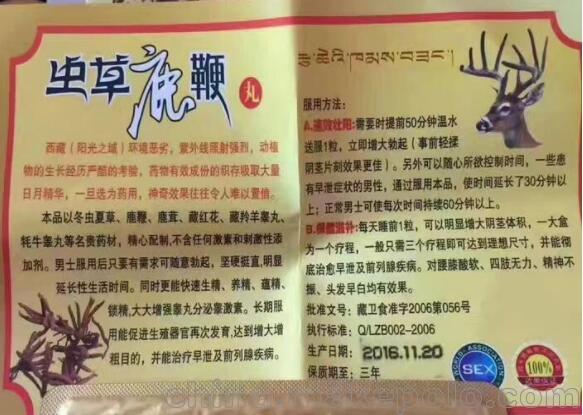 虫草鹿鞭
丸
西藏（阳光之域）环境恶劣，紫外线照射强烈，动
植物的生长经历严酷的考验，药物有效成份的积存吸取大量
日月精华，一旦选为药用，神奇效果往往令人难以置信。
本品以冬虫夏草、鹿鞭、鹿茸、藏红花、藏羚羊睾丸、
牦牛睾丸等名贵药材，精心配制，不含任何激素和刺激性添
加剂。男士服用后只要有需求可随意勃起，坚硬挺直，明显
延长性生活时间。同时更能快速生精、养精、蕴精、
锁精，大大增强睾丸分泌睾激素。长期服
用能促进生殖器官再次发育，达到增大增
粗目的，并能治疗早泄及前列腺疾病。
服用方法：
A.速效壮阳：需要时提前50分钟温水
送服1粒，立即增大勃起（事前轻揉
阴茎片刻效果更佳）。另外可以随心所欲控制时间，一些患
有早泄症状的男性，通过服用本品，使时间延长了30分钟以
上；正常男士可使每次时间持续60分钟以上。
B.保健滋补：每天睡前1粒，可以明显增大阴茎体积，一大盒
为一个疗程，一般只需三个疗程即可达到理想尺寸，并能彻
底治愈早泄及前列腺疾病。对腰膝酸软、四肢无力、精神不
振、头发早白均有效果。
批准文号：藏卫食准字2006第056号
执行标准：Q/LZB002-2006
生产日期：2016.11.20
保质期至：三年
SEX
100%